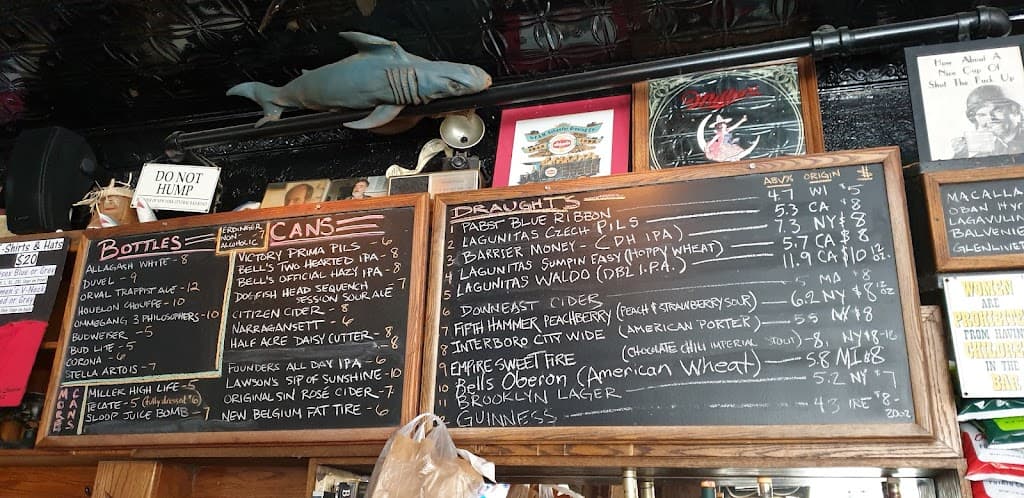 How About A
Nice Cup Of
Shut The Fuck Up
DO NOT
HUMP
T-Shirts & Hats
$20
BOTTLES
ALLAGASH WHITE - 8
DUVEL
ORVAL TRAPPIST ALE - 12
HOUBLON CHOUFFE - 10
OMMEGANG 3 PHILOSOPHERS - 10
BUDWEISER - 5
BUD LITE - 5
CORONA - 6
STELLA ARTOIS - 7
MORE CANS
MILLER HIGH LIFE - 5
TECATE - 5 (fully dressed $6)
SLOOP JUICE BOMB - 7
ERDINGER
NON
ALCOHOLIC
CANS
VICTORY PRIMA PILS - 6
BELL'S TWO HEARTED IPA - 8
BELL'S OFFICIAL HAZY IPA - 8
DOGFISH HEAD SEQUENCH
SESSION SOUR ALE - 7
CITIZEN CIDER - 8
NARRAGANSETT - 6
HALF ACRE DAISY CUTTER - 8
FOUNDERS ALL DAY IPA - 6
LAWSON'S SIP OF SUNSHINE - 10
ORIGINAL SIN ROSÉ CIDER - 7
NEW BELGIUM FAT TIRE - 6
DRAUGHTS ABV% ORIGIN $
1 PABST BLUE RIBBON 4.7 WI $5
2 LAGUNITAS CZECH PILS 5.3 CA $8
3 BARRIER MONEY - (DH IPA) 7.3 NY $8
4 LAGUNITAS SUMPIN EASY (HOPPY WHEAT) 5.7 CA $8
5 LAGUNITAS WALDO (DBL I.P.A.) 11.9 CA $10 12 oz.
6 DOWNEAST CIDER 5 MA $8
7 FIFTH HAMMER PEACHBERRY (PEACH & STRAWBERRY SOUR) 6.2 NY $8 12 oz
8 INTERBORO CITY WIDE (AMERICAN PORTER) 5.5 NY $8
9 EMPIRE SWEET FIRE (CHOCOLATE CHILI IMPERIAL STOUT) - 8. NY $8-
10 BELLS OBERON (AMERICAN WHEAT) 5.8 MI $8
11 BROOKLYN LAGER 5.2 NY $7
GUINNESS 4.3 IRE $8-
20oz
MACALLA
OBAN
LAGAVULI
BALVENIE
GLENLIVET
WOMEN
ARE
PROHIBITED
FROM HAVING
CHILDREN
IN THE
BAR